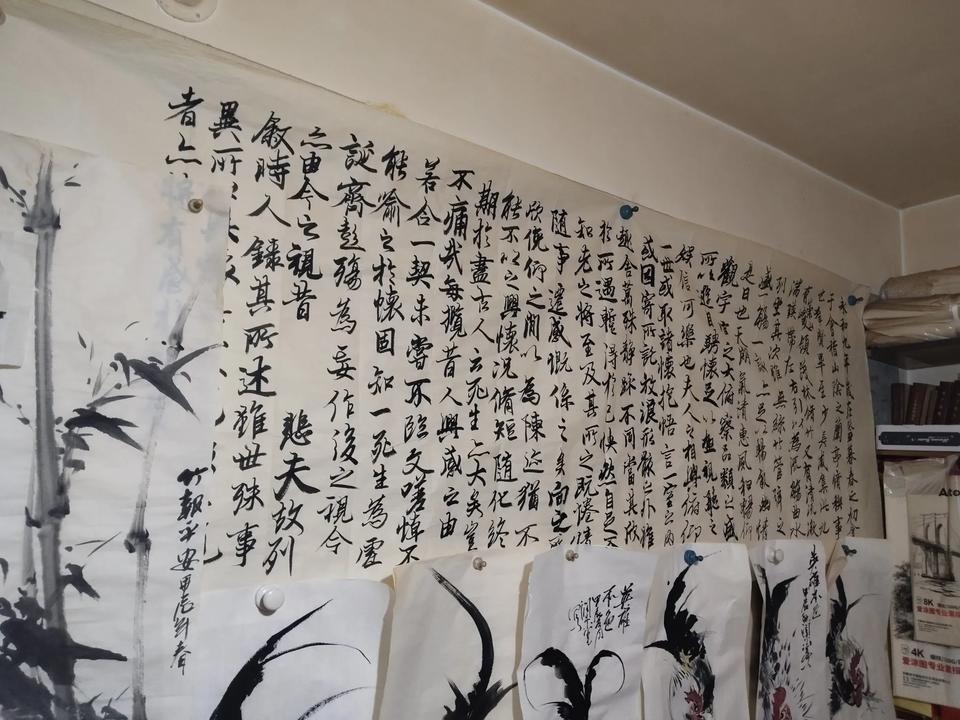 永和九年歲在癸丑暮春之初會
于會稽山陰之蘭亭脩稧事
也羣賢畢至少長咸集此地
茂林脩竹又有清流激
湍暎帶左右引以為流觴曲水
列坐其次雖無絲竹管弦之
盛一觴一詠亦足以暢叙幽情
是日也天朗氣清惠風和暢仰
觀宇宙之大俯察品類之盛
所以遊目騁懷足以極視聽之
娛信可樂也夫人之相與俯仰
一世或取諸懷抱悟言一室之內
或因寄所託放浪形骸之外雖
趣舍萬殊靜躁不同當其欣
於所遇輒得於己快然自足不
知老之將至及其所之既惓情
隨事遷感慨係之矣向之所
欣俛仰之間以為陳迹猶不
能不以之興懷況脩短隨化終
期於盡古人云死生亦大矣豈
不痛哉每攬昔人興感之由
若合一契未嘗不臨文嗟悼不
能喻之於懷固知一死生為虛
誕齊彭殤為妄作後之視今
亦由今之視昔 悲夫故列
敘時人錄其所述雖世殊事
異所
者亦
竹報平安
英雄本色
英雄本色
8K
4K